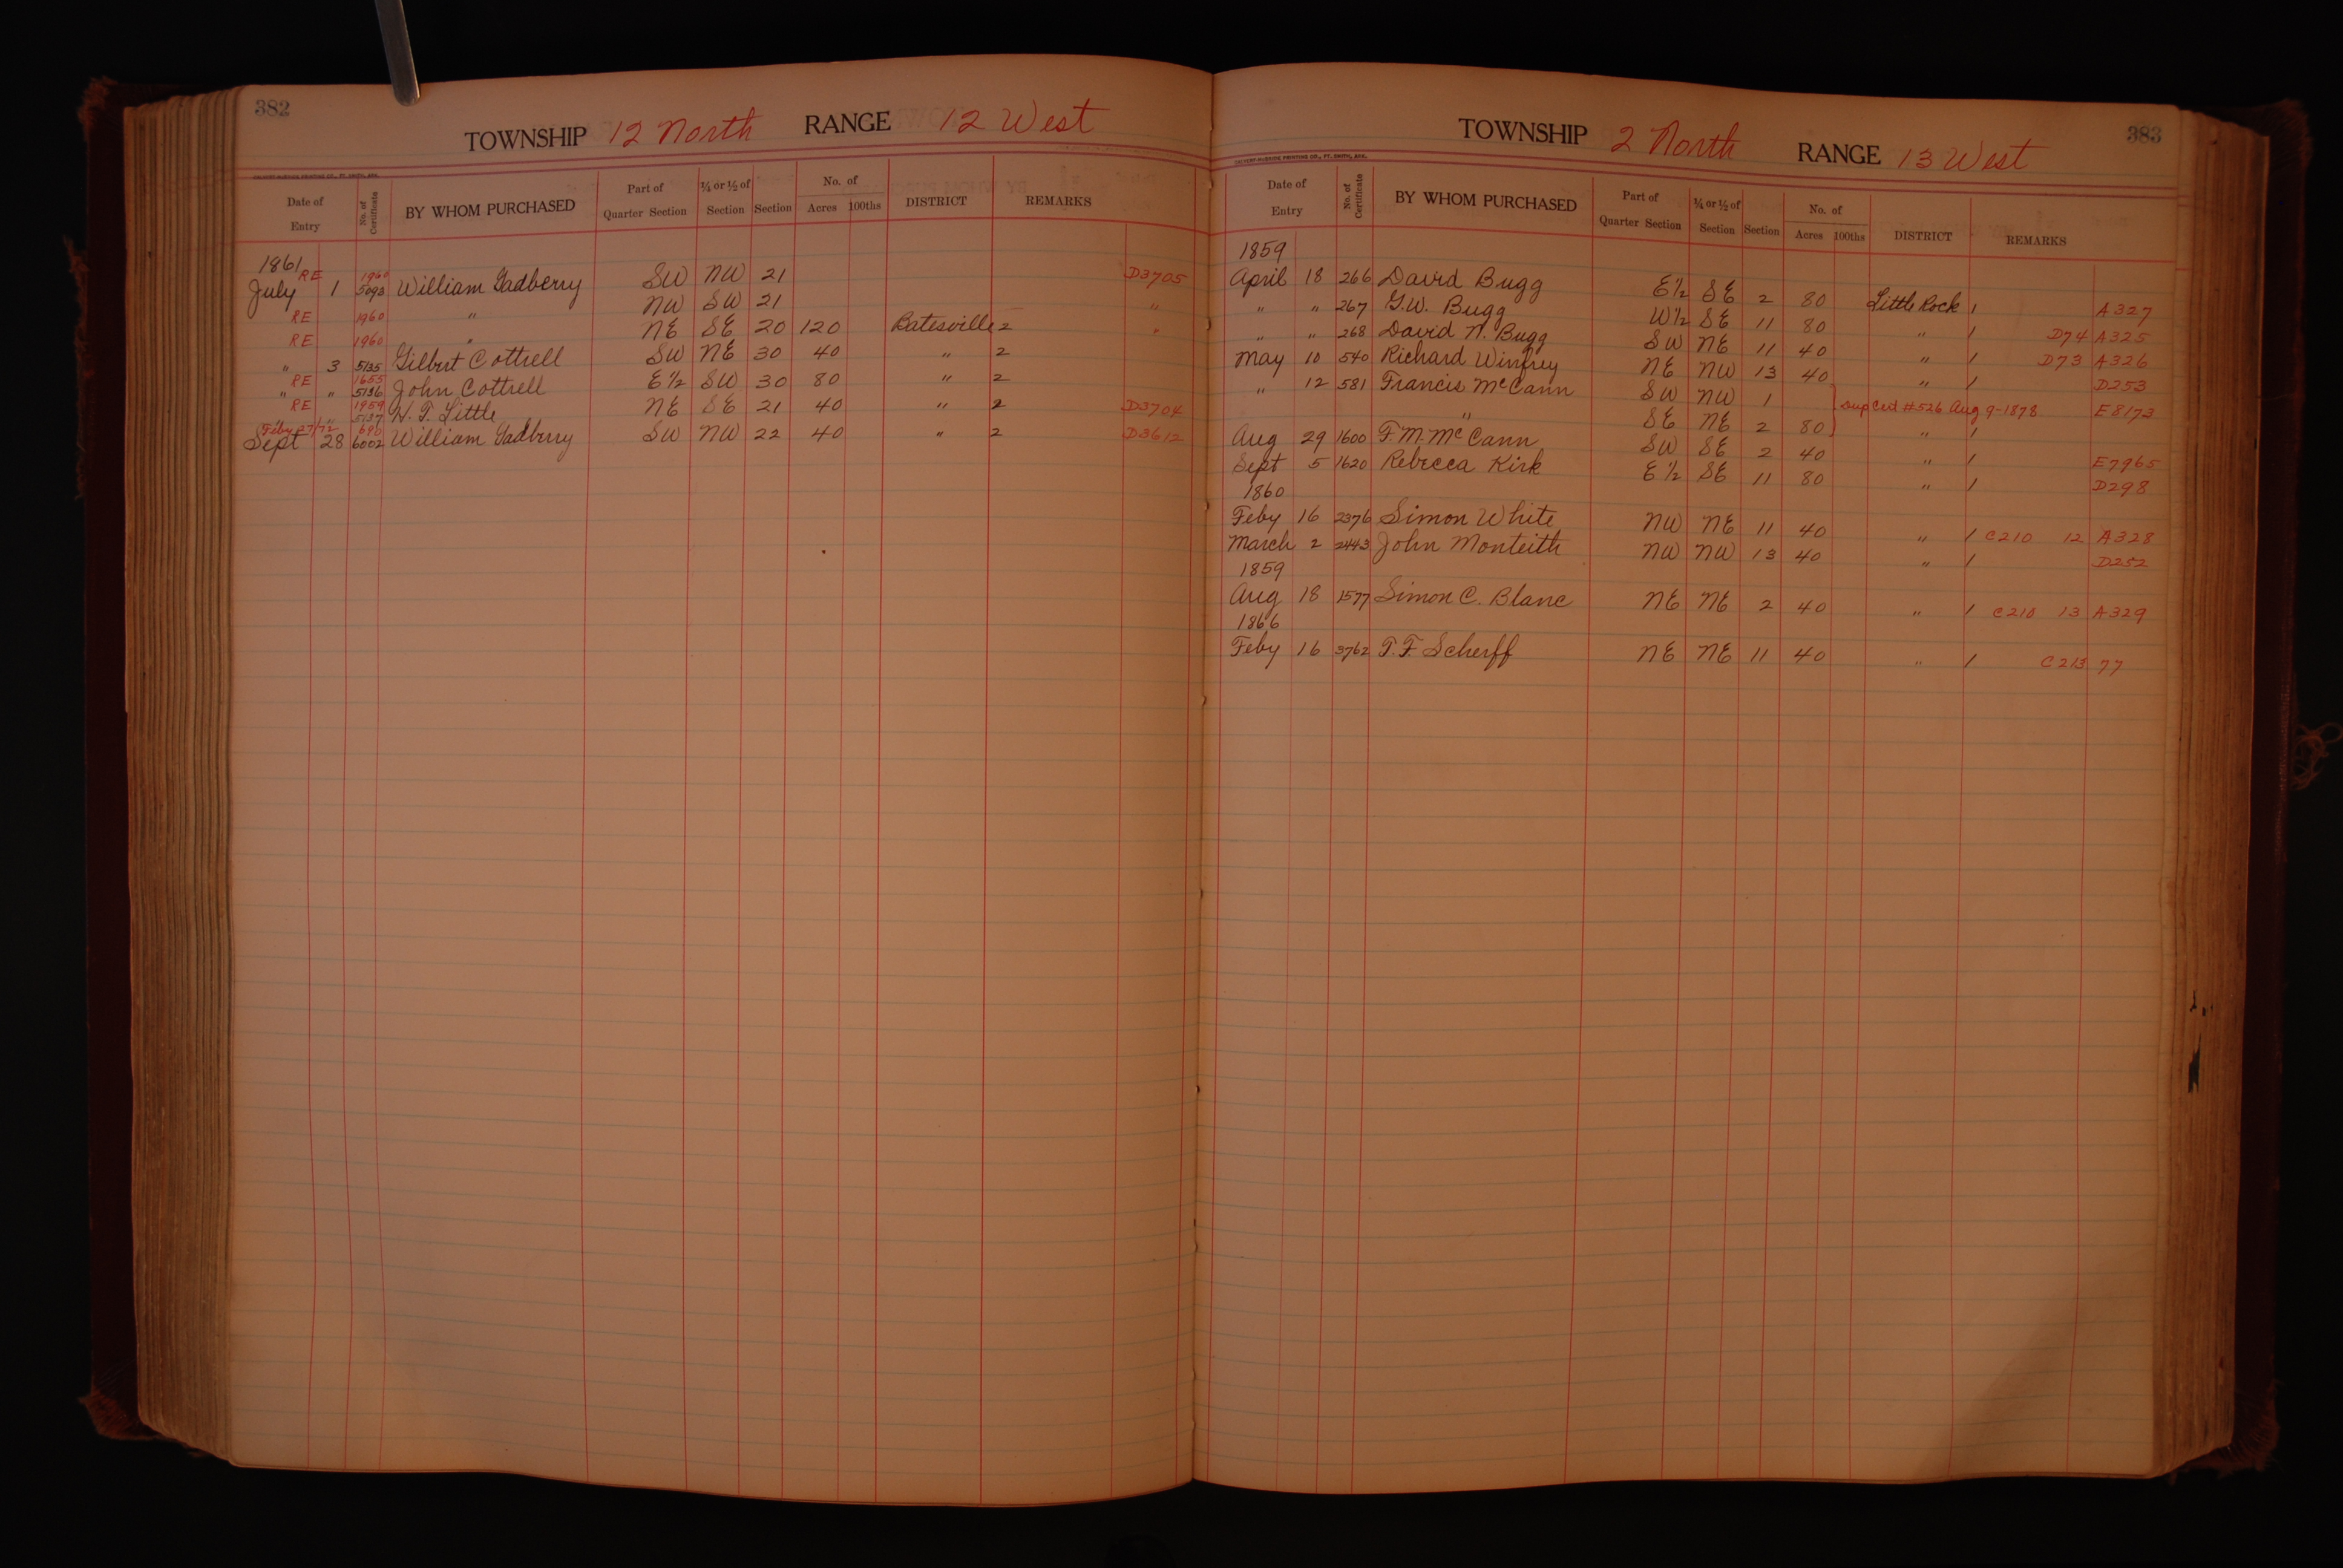 382
TOWNSHIP 12 North RANGE 12 West
CALVERT-McBRIDE PRINTING CO., FT. SMITH, ARK.
Date of Entry No. of Certificate BY WHOM PURCHASED Part of Quarter Section ¼ or ½ of Section Section No. of Acres 100ths DISTRICT REMARKS
1861
RE 1960 D3705
July 1 5093 William Gadberry SW NW 21
RE 1960 " NW SW 21 "
RE 1960 " NE SE 20 120 Batesville 2 "
" 3 5135 Gilbert Cottrell SW NE 30 40 " 2
RE 1655
" " 5136 John Cottrell E½ SW 30 80 " 2
RE 1959
" " 5137 H. T. Little NE SE 21 40 " 2 D3704
Feby 27/72 690
Sept 28 6002 William Gadberry SW NW 22 40 " 2 D3612
383
TOWNSHIP 2 North RANGE 13 West
CALVERT-McBRIDE PRINTING CO., FT. SMITH, ARK.
Date of Entry No. of Certificate BY WHOM PURCHASED Part of Quarter Section ¼ or ½ of Section Section No. of Acres 100ths DISTRICT REMARKS
1859
April 18 266 David Bugg E½ SE 2 80 Little Rock 1 A327
" " 267 G.W. Bugg W½ SE 11 80 " 1 D74 A325
" " 268 David N. Bugg SW NE 11 40 " 1 D73 A326
May 10 540 Richard Winfrey NE NW 13 40 " 1 D253
" 12 581 Francis McCann SW NW 1 Dup Cert #526 Aug 9-1878 E8173
" SE NE 2 80 " 1
Aug 29 1600 F. M. McCann SW SE 2 40 " 1 E7965
Sept 5 1620 Rebecca Kirk E½ SE 11 80 " 1 D298
1860
Feby 16 2376 Simon White NW NE 11 40 " 1 C210 12 A328
March 2 2443 John Monteith NW NW 13 40 " 1 D252
1859
Aug 18 1577 Simon C. Blanc NE NE 2 40 " 1 C210 13 A329
1866
Feby 16 3762 T. F. Scherff NE NE 11 40 " 1 C213 77